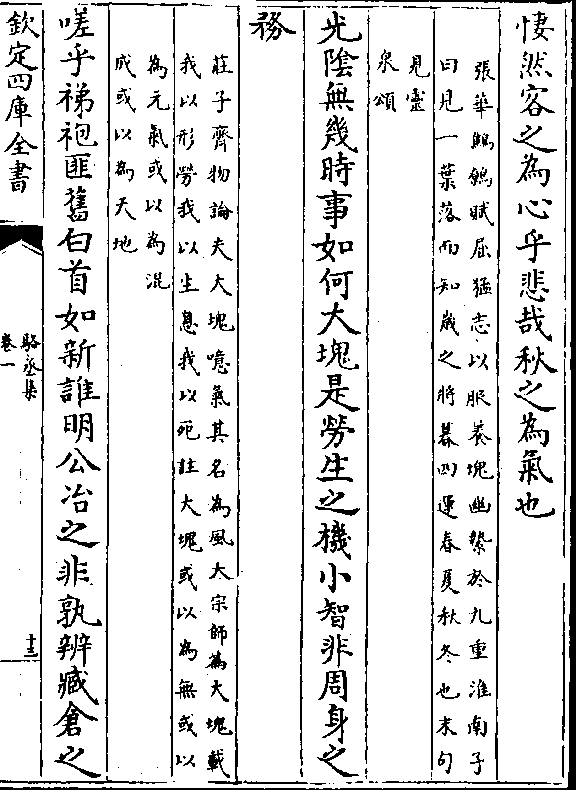 悽然客之為心乎悲哉秋之為氣也
張華鷦鷯賦屈猛志以服養塊幽縶於九重淮南子
曰見一葉落而知歲之將暮四運春夏秋冬也末句
見靈
泉頌
光陰無幾時事如何大塊是勞生之機小智非周身之
務
莊子齊物論夫大塊噫氣其名為風大宗師篇大塊載
我以形勞我以生息我以死註大塊或以為無或以
為元氣或以為混
成或以為天地
嗟乎綈袍匪舊白首如新誰明公冶之非孰辨臧倉之
欽定四庫全書
駱丞集
卷一
十三